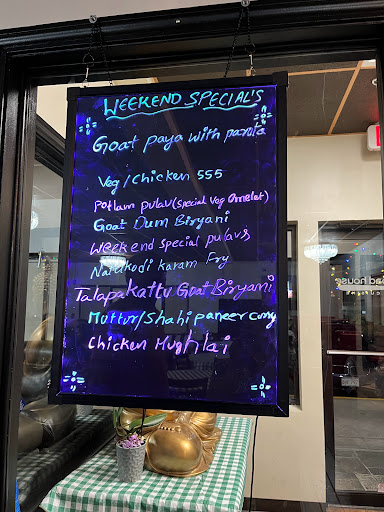 WEEKEND SPECIAL'S
Goat paya with parata
Veg/Chicken 555
Potlam pulav (Special Veg Omelet)
Goat Dum Biryani
Weekend Special pulav's
Natukodi karam Fry
Talapakattu Goat Biryani
Mutter/Shahi paneer curry
Chicken Mughlai